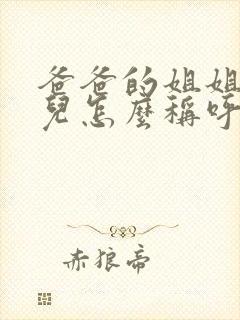 爸爸的姐姐
兒怎麼稱呼
赤狼帝